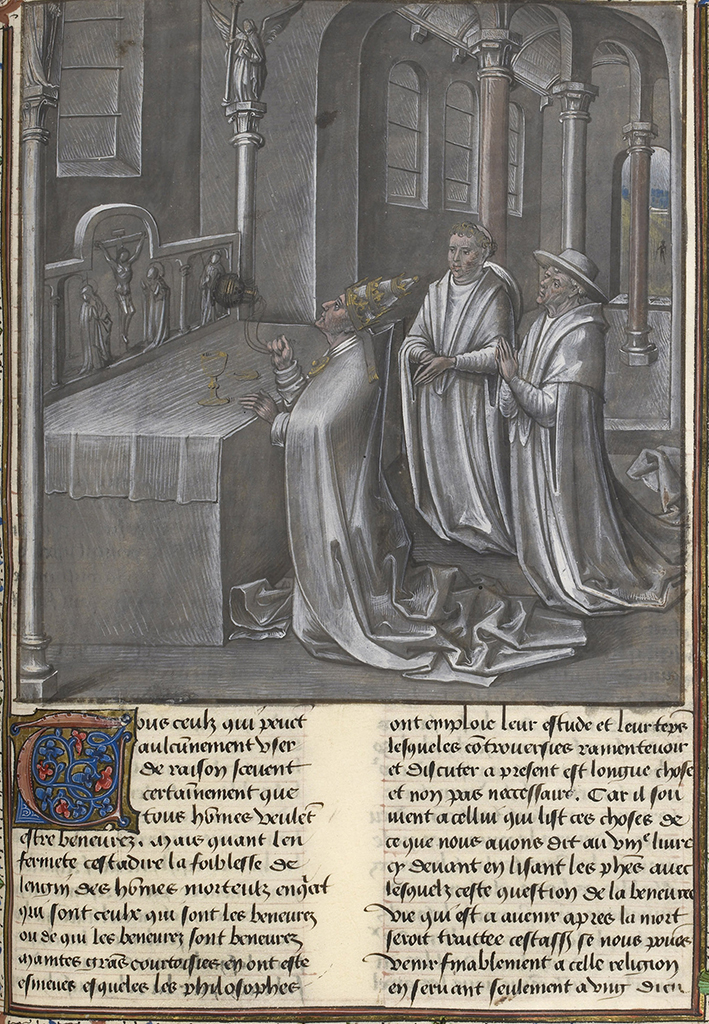 Tous ceulx qui peuet
aulcunnement vser
de raison sceuent
certainnement que
tous hōmes veulēt
estre beneurez. Mais quant len
fermete cestadire la foiblesse de
lengin des hōmes mortelz enq̄rt
qui sont ceulx qui sont les beneurez
ou de qui les beneurez sont beneurez
maintes grās courtoisies en ont este
esmeues esqueles les philosophes
ont emploie leur estude et leur teps
lesqueles cōtrouersies ramenteuoir
et discuter a present est longue chose
et non pas necessaire. Car il sou
uient a cellui qui list ces choses de
ce que nous auons dit au viiie liure
cy deuant en lisant les phēs auec
lesquelz ceste question de la beneuree
vie qui est a auenir apres la mort
seroit traittee cestass se nous pouōs
venir finablement a celle religion
en seruant seulement a vng dieu